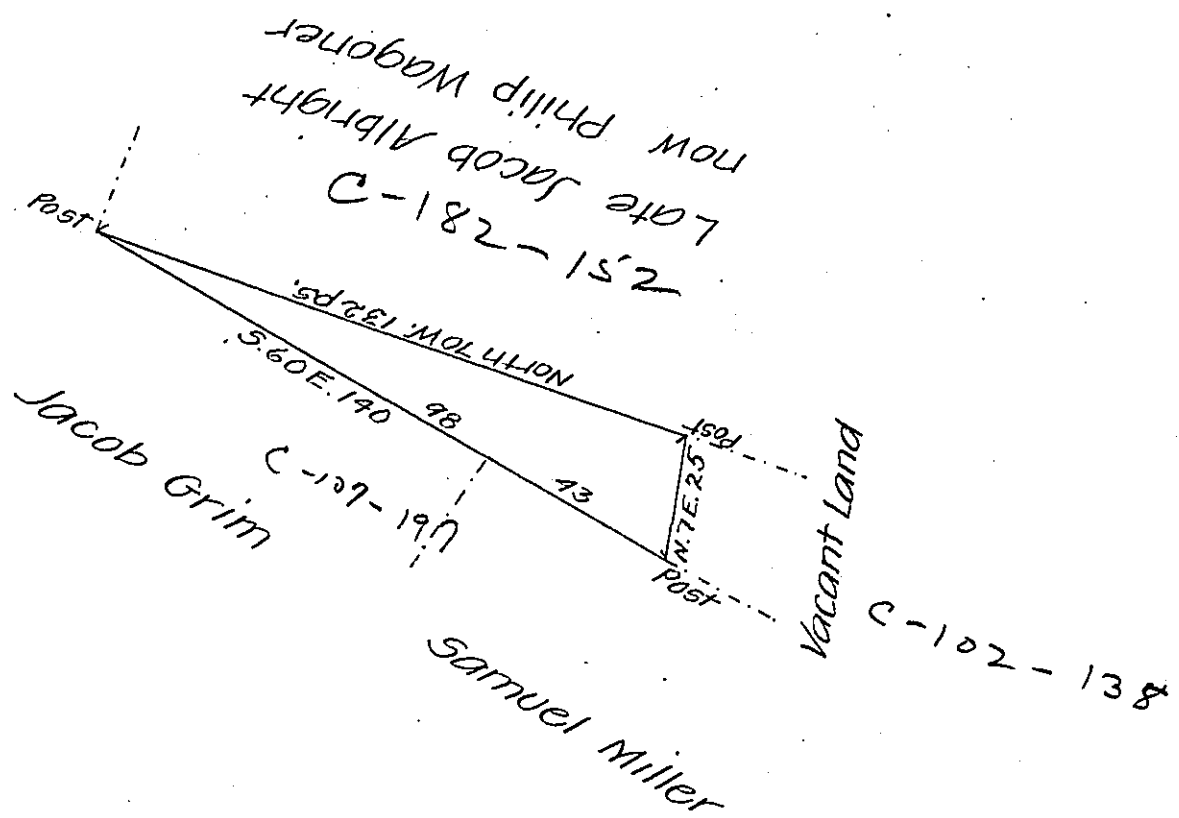 Late Jacob Albright
now Philip Wagoner
C-182-152
Post
North 70W. 132 ps.
S.60E.140
98
43
Post
N.7E.25
Post
Jacob Grim
C-107-197
Vacant Land
C-102-138
Samuel Miller